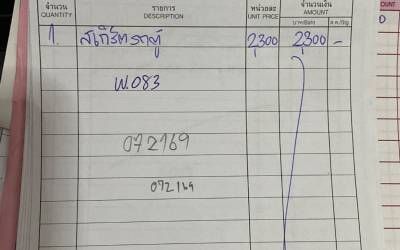 จำนวน รายการ หน่วยละ จำนวนเงิน
QUANTITY DESCRIPTION UNIT PRICE AMOUNT
บาท/Baht ส.ต./Stg.
1. สเกิร์ตรถตู้ 2,300 2,300 -
พ.083
072169
072169
OUNT
D